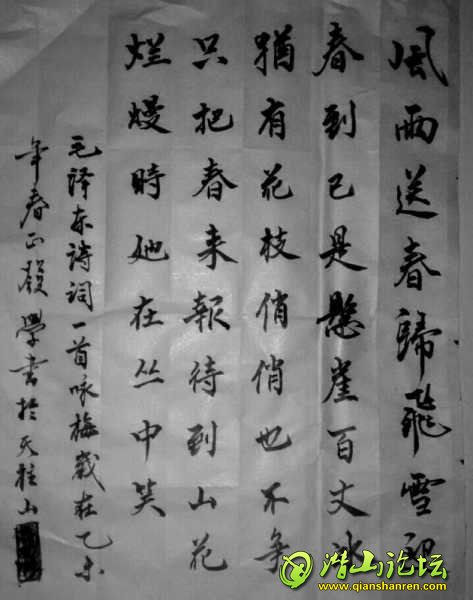 風雨送春歸飛雪迎
春到已是懸崖百丈冰
猶有花枝俏俏也不争
只把春来報待到山花
烂熳時她在丛中笑
毛泽东诗词一首咏梅歲在乙未
年春正發學書於天柱山
潜山论坛
www.qianshanren.com